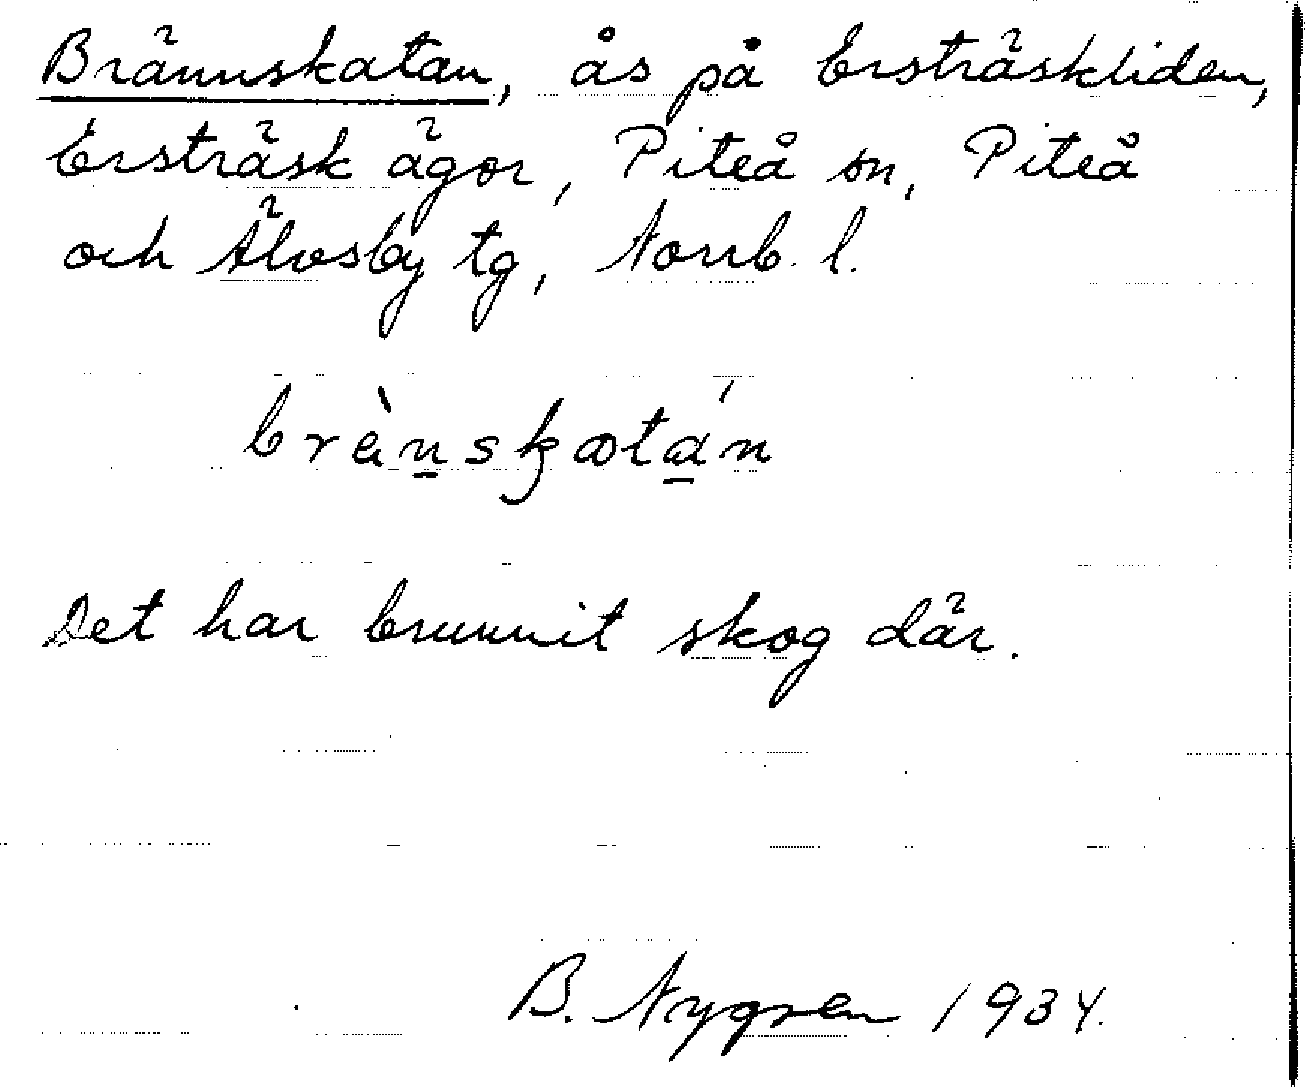 Brännskatan, ås på Ersträskliden,
Ersträsk ägor, Piteå sn, Piteå
och Älvsby tg, Norrb. l.
brènskatán
Det har brunnit skog där.
B. Nygren 1934.